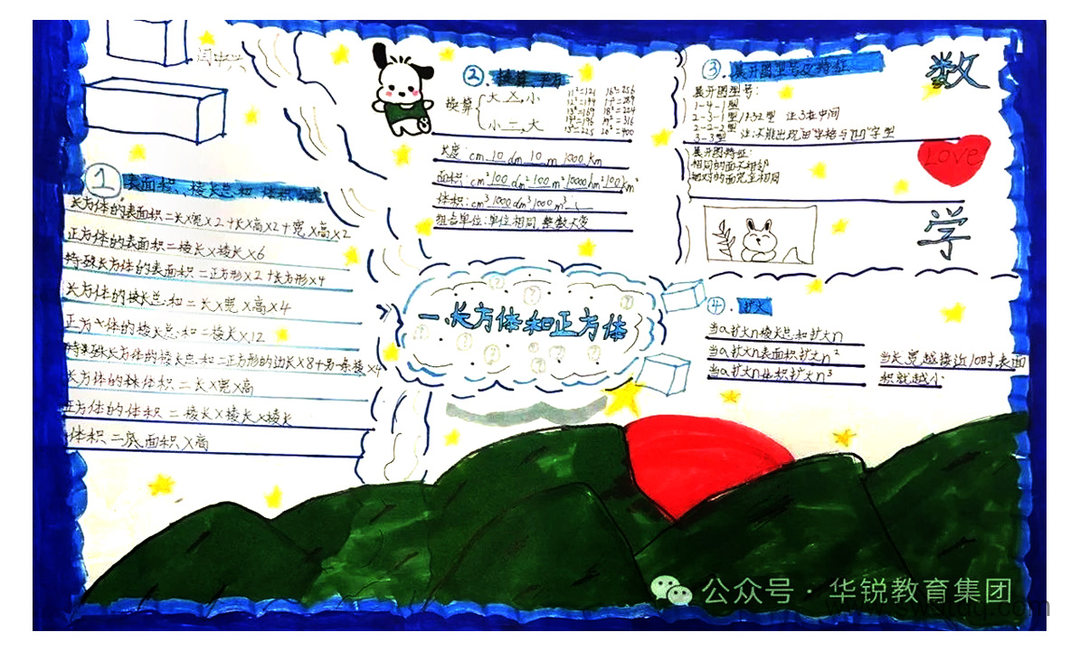 闫中兴
①表面积、棱长总和、体积公式
长方体的表面积=长×宽×2+长×高×2+宽×高×2
正方体的表面积=棱长×棱长×6
特殊长方体的表面积=正方形×2+长方形×4
长方体的棱长总和=长×宽×高×4
正方体的棱长总和=棱长×12
特殊长方体的棱长总和=正方形的边长×8+另一条棱×4
长方体的体积=长×宽×高
正方体的体积=棱长×棱长×棱长
体积=底面积×高
②换算、平方
换算{大×小
小÷大
11²=121 16²=256
12²=144 17²=289
13²=169 18²=324
14²=196 19²=316
15²=225 20²=400
长度:cm 10 dm 10 m 1000 km
面积:cm² 100 dm² 100 m² 10000 hm² 100 km²
体积:cm³ 1000 dm³ 1000 m³
组合单位:单位相同,整数大变
一、长方体和正方体
③.展开图型号及特征
展开图型号:
1-4-1型
2-3-1型/132型 注:3在中间
2-2-2型
3-3型 注:不能出现"田"字格与"凹"字型
展开图特征:
相同的面不相邻
相对的面完全相同
数
Love
学
④.扩大
当a扩大n棱长总和扩大n
当a扩大n表面积扩大n²
当a扩大n体积扩大n³
当长宽越接近10时,表面
积就越小
公众号·华锐教育集团